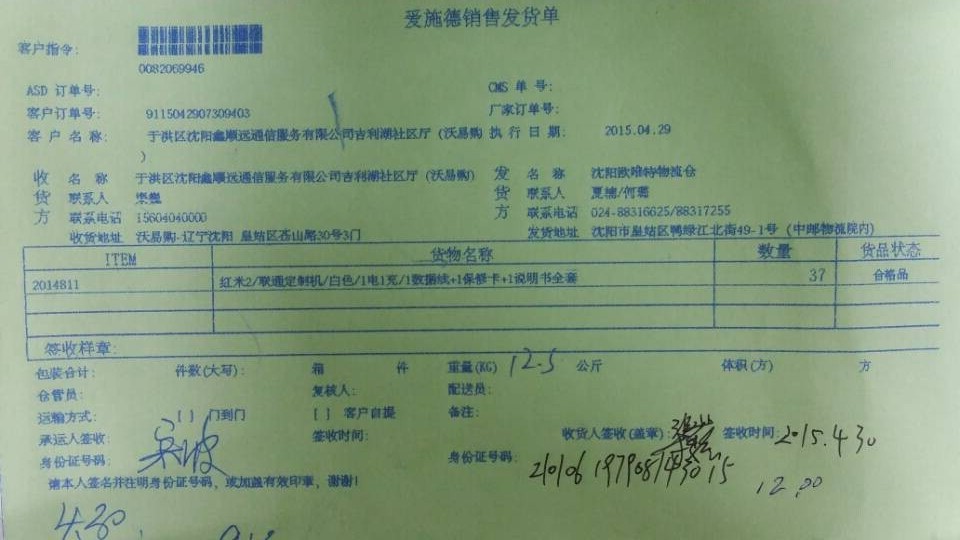 爱施德销售发货单
客户指令:
0082069946
ASD 订单号: CMS 单号:
客户订单号: 9115042907309403 厂家订单号:
客户名称: 于洪区沈阳鑫顺远通信服务有限公司吉利湖社区厅（沃易购 执行日期: 2015.04.29
）
收 名称 于洪区沈阳鑫顺远通信服务有限公司吉利湖社区厅（沃易购） 发 名称 沈阳欧唯特物流仓
货 联系人 货 联系人
方 联系电话 15604040000 方 联系电话 024-88316625/88317255
收货地址 沃易购-辽宁沈阳 皇姑区西山路30号3门 发货地址 沈阳市皇姑区鸭绿江北街49-1号（中邮物流院内）
ITEM 货物名称 数量 货品状态
2014811 红米2/联通定制机/白色/1电1充/1数据线+1保修卡+1说明书全套 37 合格品
签收样章:
包装合计: 件数(大写): 箱 件 重量(KG) 12.5 公斤 体积(方) 方
仓管员: 复核人: 配送员:
运输方式: [ ] 门到门 [ ] 客户自提 备注:
承运人签收: 签收时间: 收货人签收(盖章): 签收时间: 2015.4.30
身份证号码: 身份证号码: 12.00
请本人签名并注明身份证号码，或加盖有效印章，谢谢!
4.30